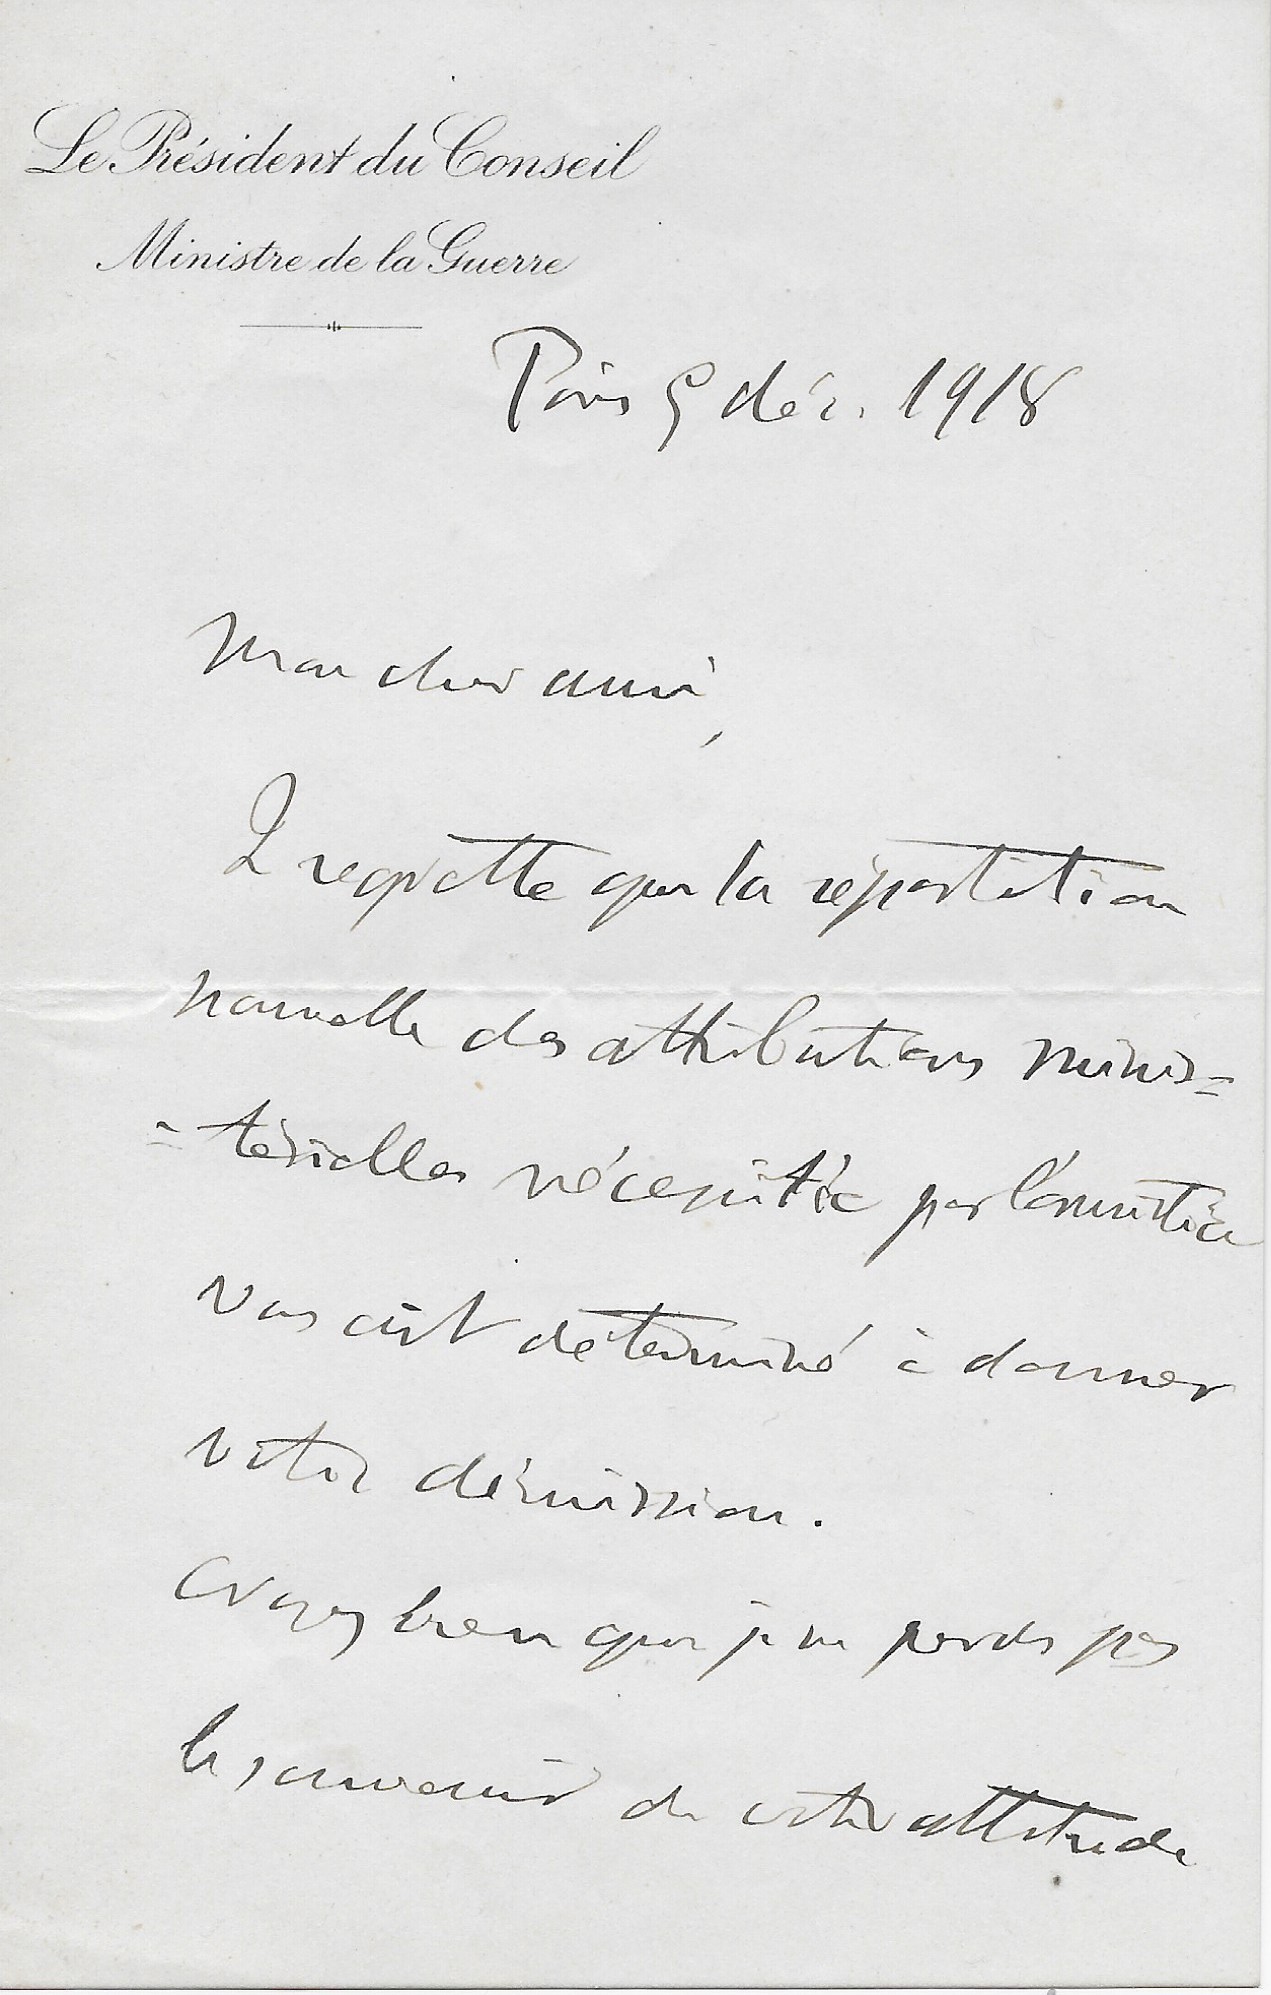 Le Président du Conseil
Ministre de la Guerre
Paris 5 déc. 1918
Mon cher ami,
Je regrette que la répartition
nouvelle des attributions minis=
=térielles nécessitée par l'armistice
vous ait déterminé à donner
votre démission.
Croyez bien que je ne perds pas
le souvenir de votre attitude